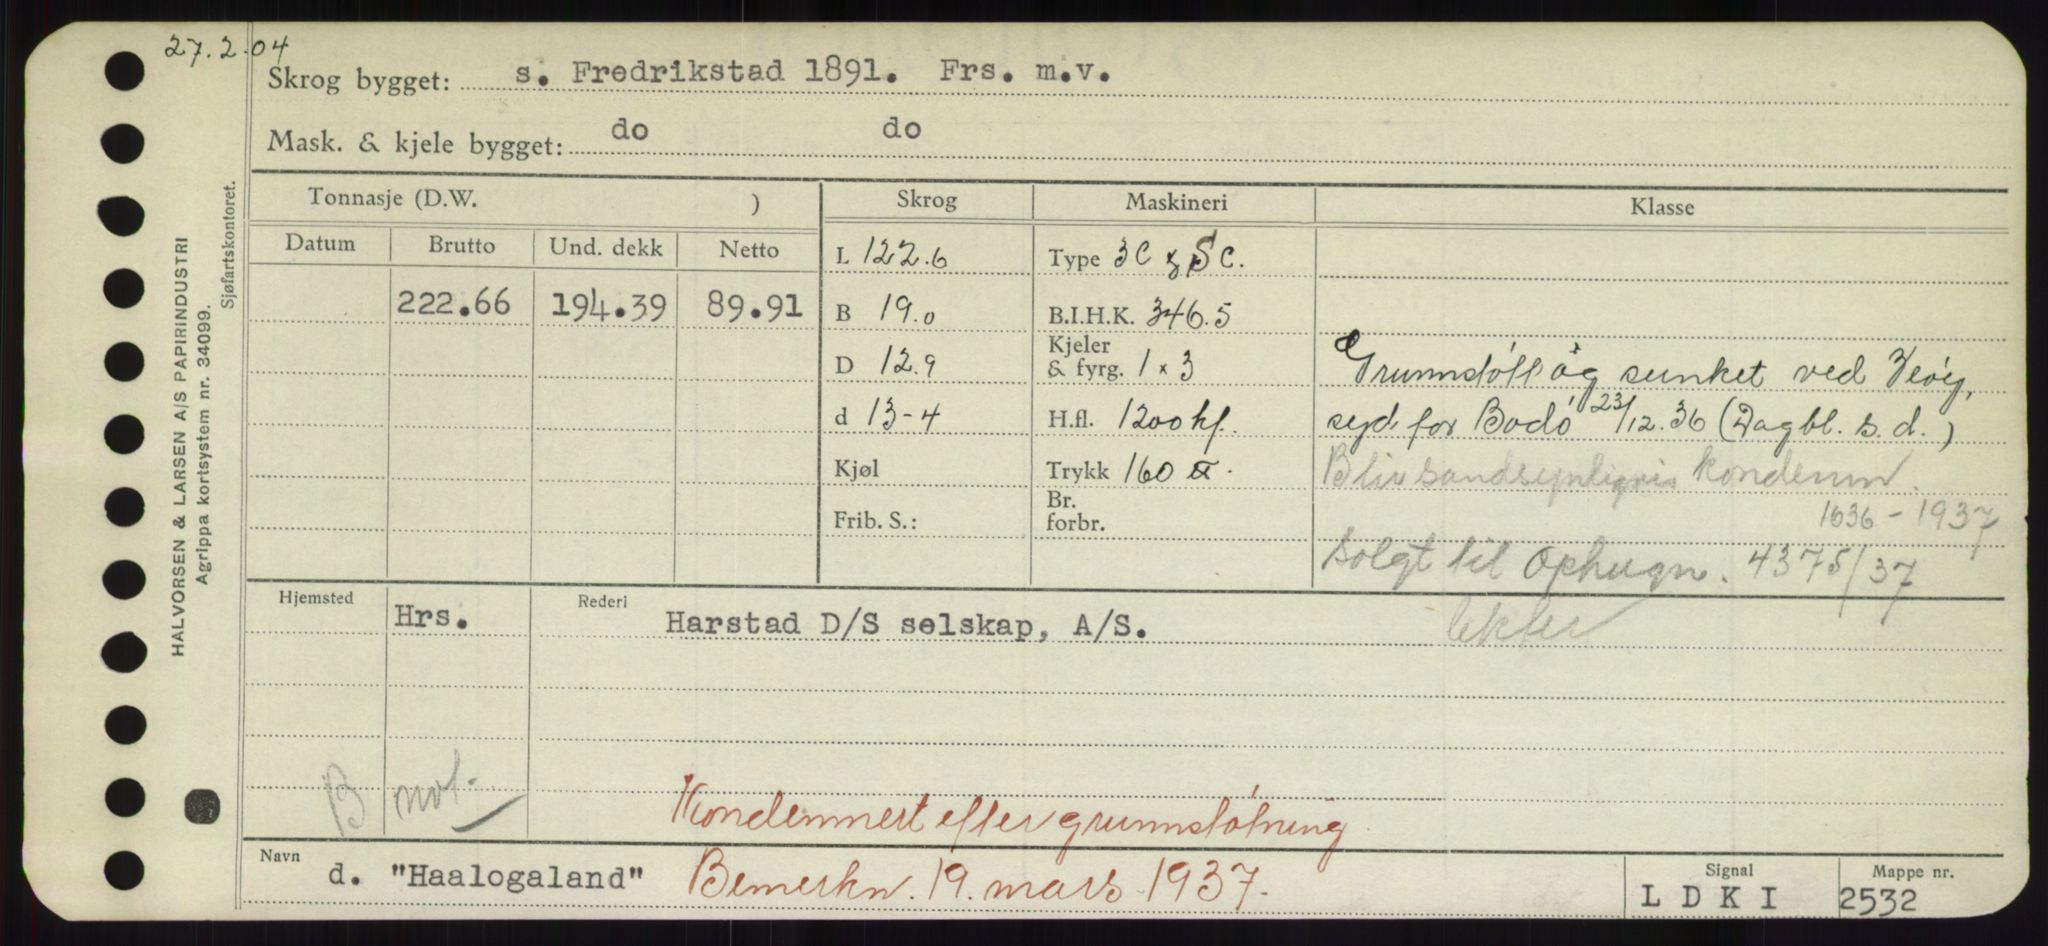 27.2.04
Skrog bygget: s. Fredrikstad 1891. Frs. m.v.
Mask. & kjele bygget: do do
HALVORSEN & LARSEN A/S PAPIRINDUSTRI
Agrippa kortsystem nr. 34099.
Sjøfartskontoret.
Tonnasje (D.W. ) Skrog Maskineri Klasse
Datum Brutto Und. dekk Netto
L 122.6 Type 3C SC.
222.66 194.39 89.91 B 19.0 B.I.H.K. 346.5
D 12.9 Kjeler & fyrg. 1 x 3
Grunnstött og sunket ved
d 13-4 H.fl. 1200 hf.
syd for Bodö 23/12.36 (Dagbl. s.d.)
Kjøl Trykk 160
Bliv sandsynligvis kondemn.
Frib. S.: Br. forbr.
1636 - 1937
Solgt til Ophugn. 4375/37
Hjemsted Hrs. Rederi Harstad D/S selskap, A/S.
B not.
Kondemnert efter grunnstötning
Navn d. "Haalogaland" Bemerkn. 19. mars 1937.
Signal L D K I
Mappe nr. 2532